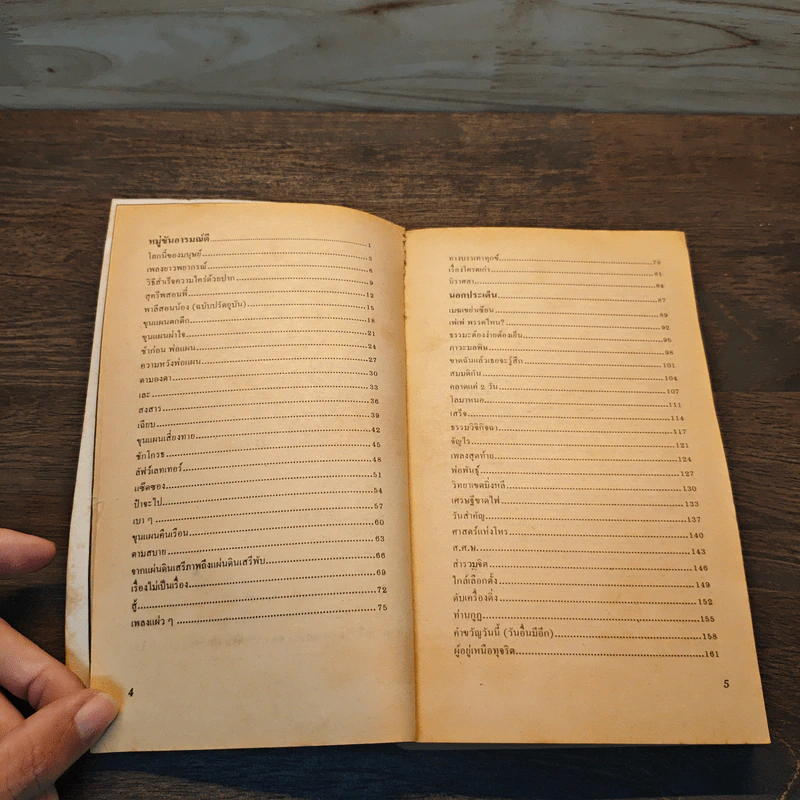 หมู่ขันอารมณ์ดี....1
โลกนี้ของมนุษย์....3
เพลงยาวพยากรณ์....6
วิธีสำเร็จความใคร่ด้วยปาก....9
สุครีพสอนพี่....12
พาลีสอนน้อง (ฉบับปรัตยุบัน)....15
ขุนแผนตกตึก....18
ขุนแผนผ่าใจ....21
ช้าก่อน พ่อแผน....24
ความหวังพ่อแผน....27
ตามองตา....30
เละ....33
สงสาร....36
เฉียบ....39
ขุนแผนเสี่ยงทาย....42
ชักโกรธ....45
ลัฟว์เลทเทอร์....48
แซ็ดซอง....51
ป๋าจะไป....54
เบา ๆ....57
ขุนแผนคืนเรือน....60
ตามสบาย....63
จากแผ่นดินเสรีภาพถึงแผ่นดินเสรีพับ....66
เรื่องไม่เป็นเรื่อง....69
สู้....72
เพลงแผ่ว ๆ....75
4
ทางบรรเทาทุกข์....79
เรื่องโครตเก่า....81
นิราศสา....84
นอกประเด็น....87
เมฆเขย่าเซียน....89
เฟ้เฟ่ พรรคไหน?....92
ธรรมะต้องง่ายต้องเย็น....95
ภาวะมลพิษ....98
ขาดฉันแล้วเธอจะรู้สึก....101
สมมติกัน....104
คลาดแค่ 2 วัน....107
โลมาหนอ....111
เสร็จ....114
ธรรมวิจิกิจฉา....117
จัญไร....121
เพลงสุดท้าย....124
พ่อพันธุ์....127
วิทยาเขตบึ่งหลี....130
เศรษฐีขาดไฟ....133
วันสำคัญ....137
ศาสตร์แห่งโหร....140
ส.ศ.ษ....143
สำรวมจิต....146
ใกล้เลือกตั้ง....149
ดับเครื่องดิ่ง....152
ท่านกูฏ....155
คำขวัญวันนี้ (วันอื่นมีอีก)....158
ผู้อยู่เหนือทุจริต....161
5